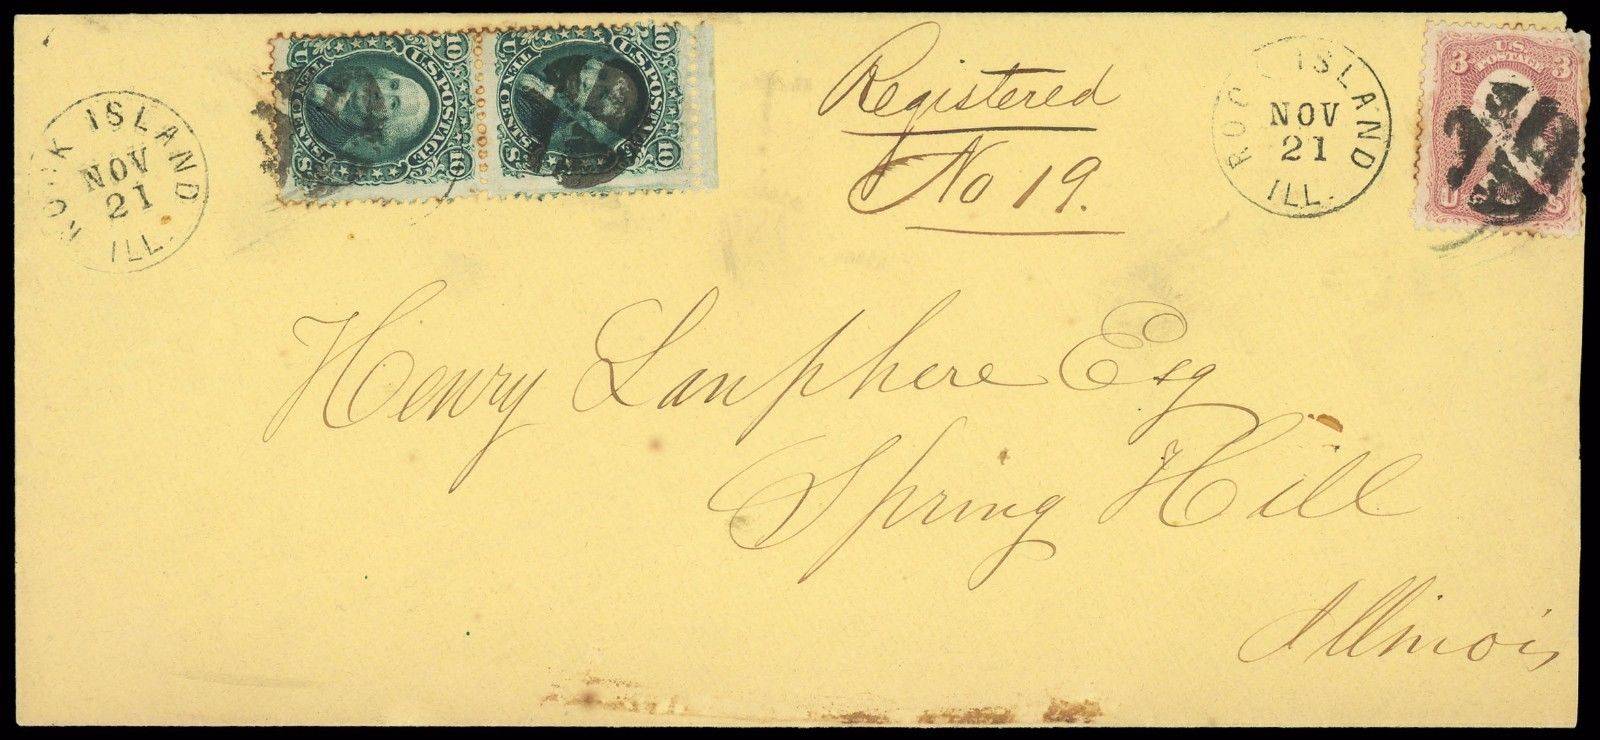 ROCK ISLAND
NOV
21
ILL.
10 U.S. POSTAGE 10
U TEN CENTS S
10 U.S. POSTAGE 10
U TEN CENTS S
Registered
No 19.
ROCK ISLAND
NOV
21
ILL.
3 U.S. 3
POSTAGE
U S
Henry Lanphere Esq
Spring Hill
Illinois